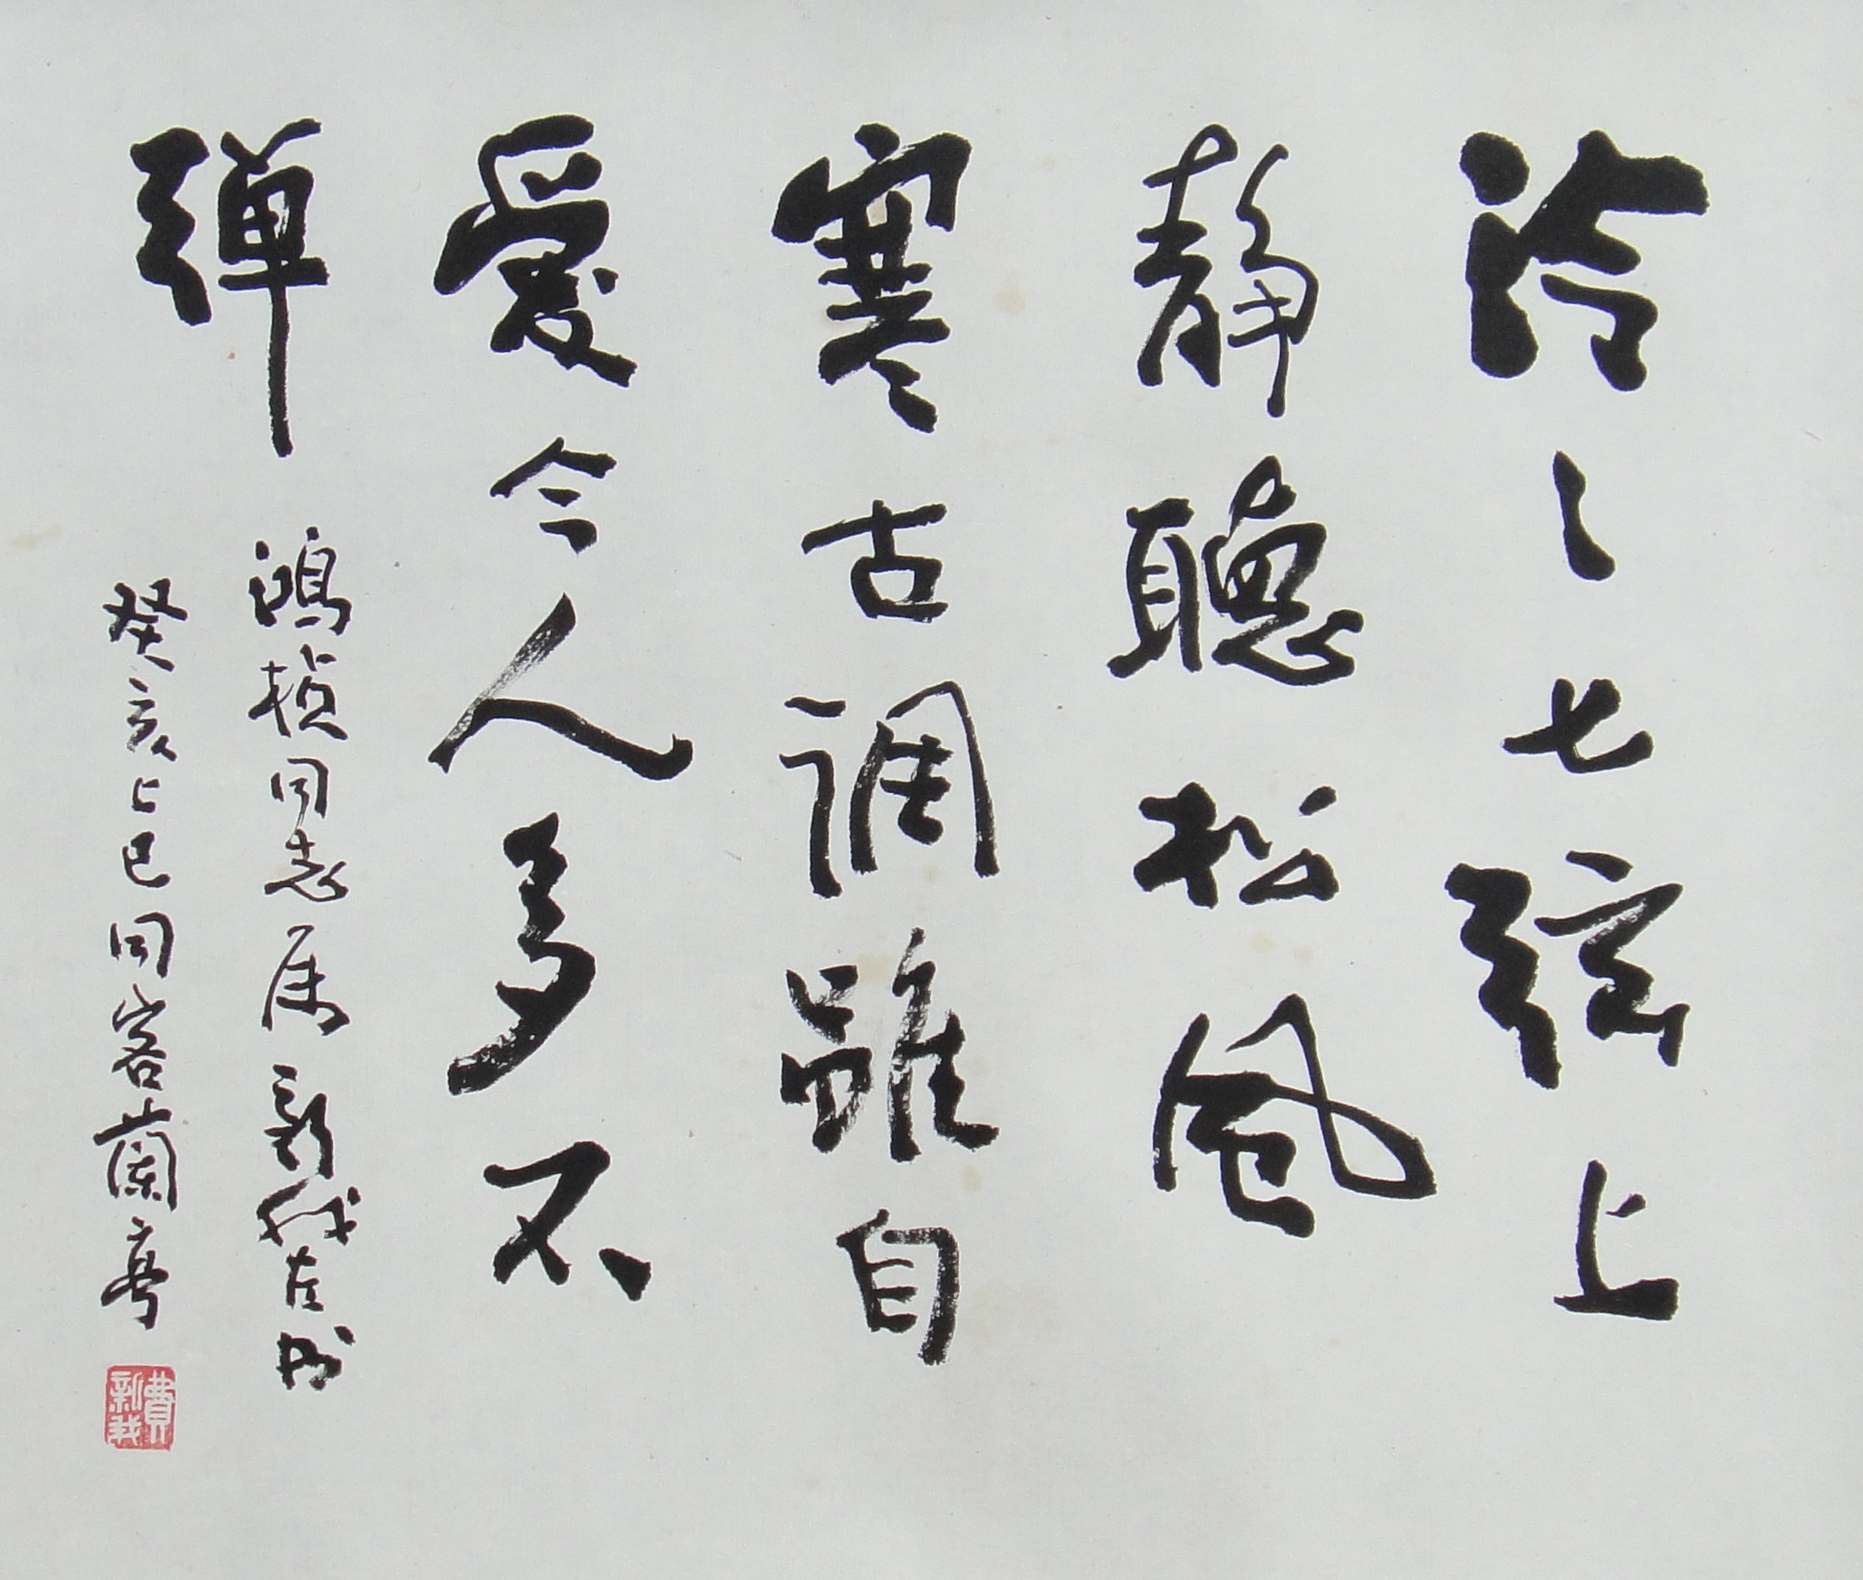 泠〻七弦上
静聽松風
寒古調雖自
愛今人多不
彈
鴻楨同志属 新我左书
癸亥上巳同客蘭亭
費新我